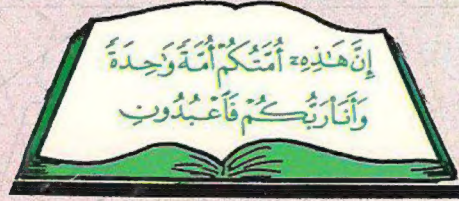 إِنَّ هَٰذِهِۦ أُمَّتُكُمْ أُمَّةً وَٰحِدَةً
وَأَنَا۠ رَبُّكُمْ فَٱعْبُدُونِ